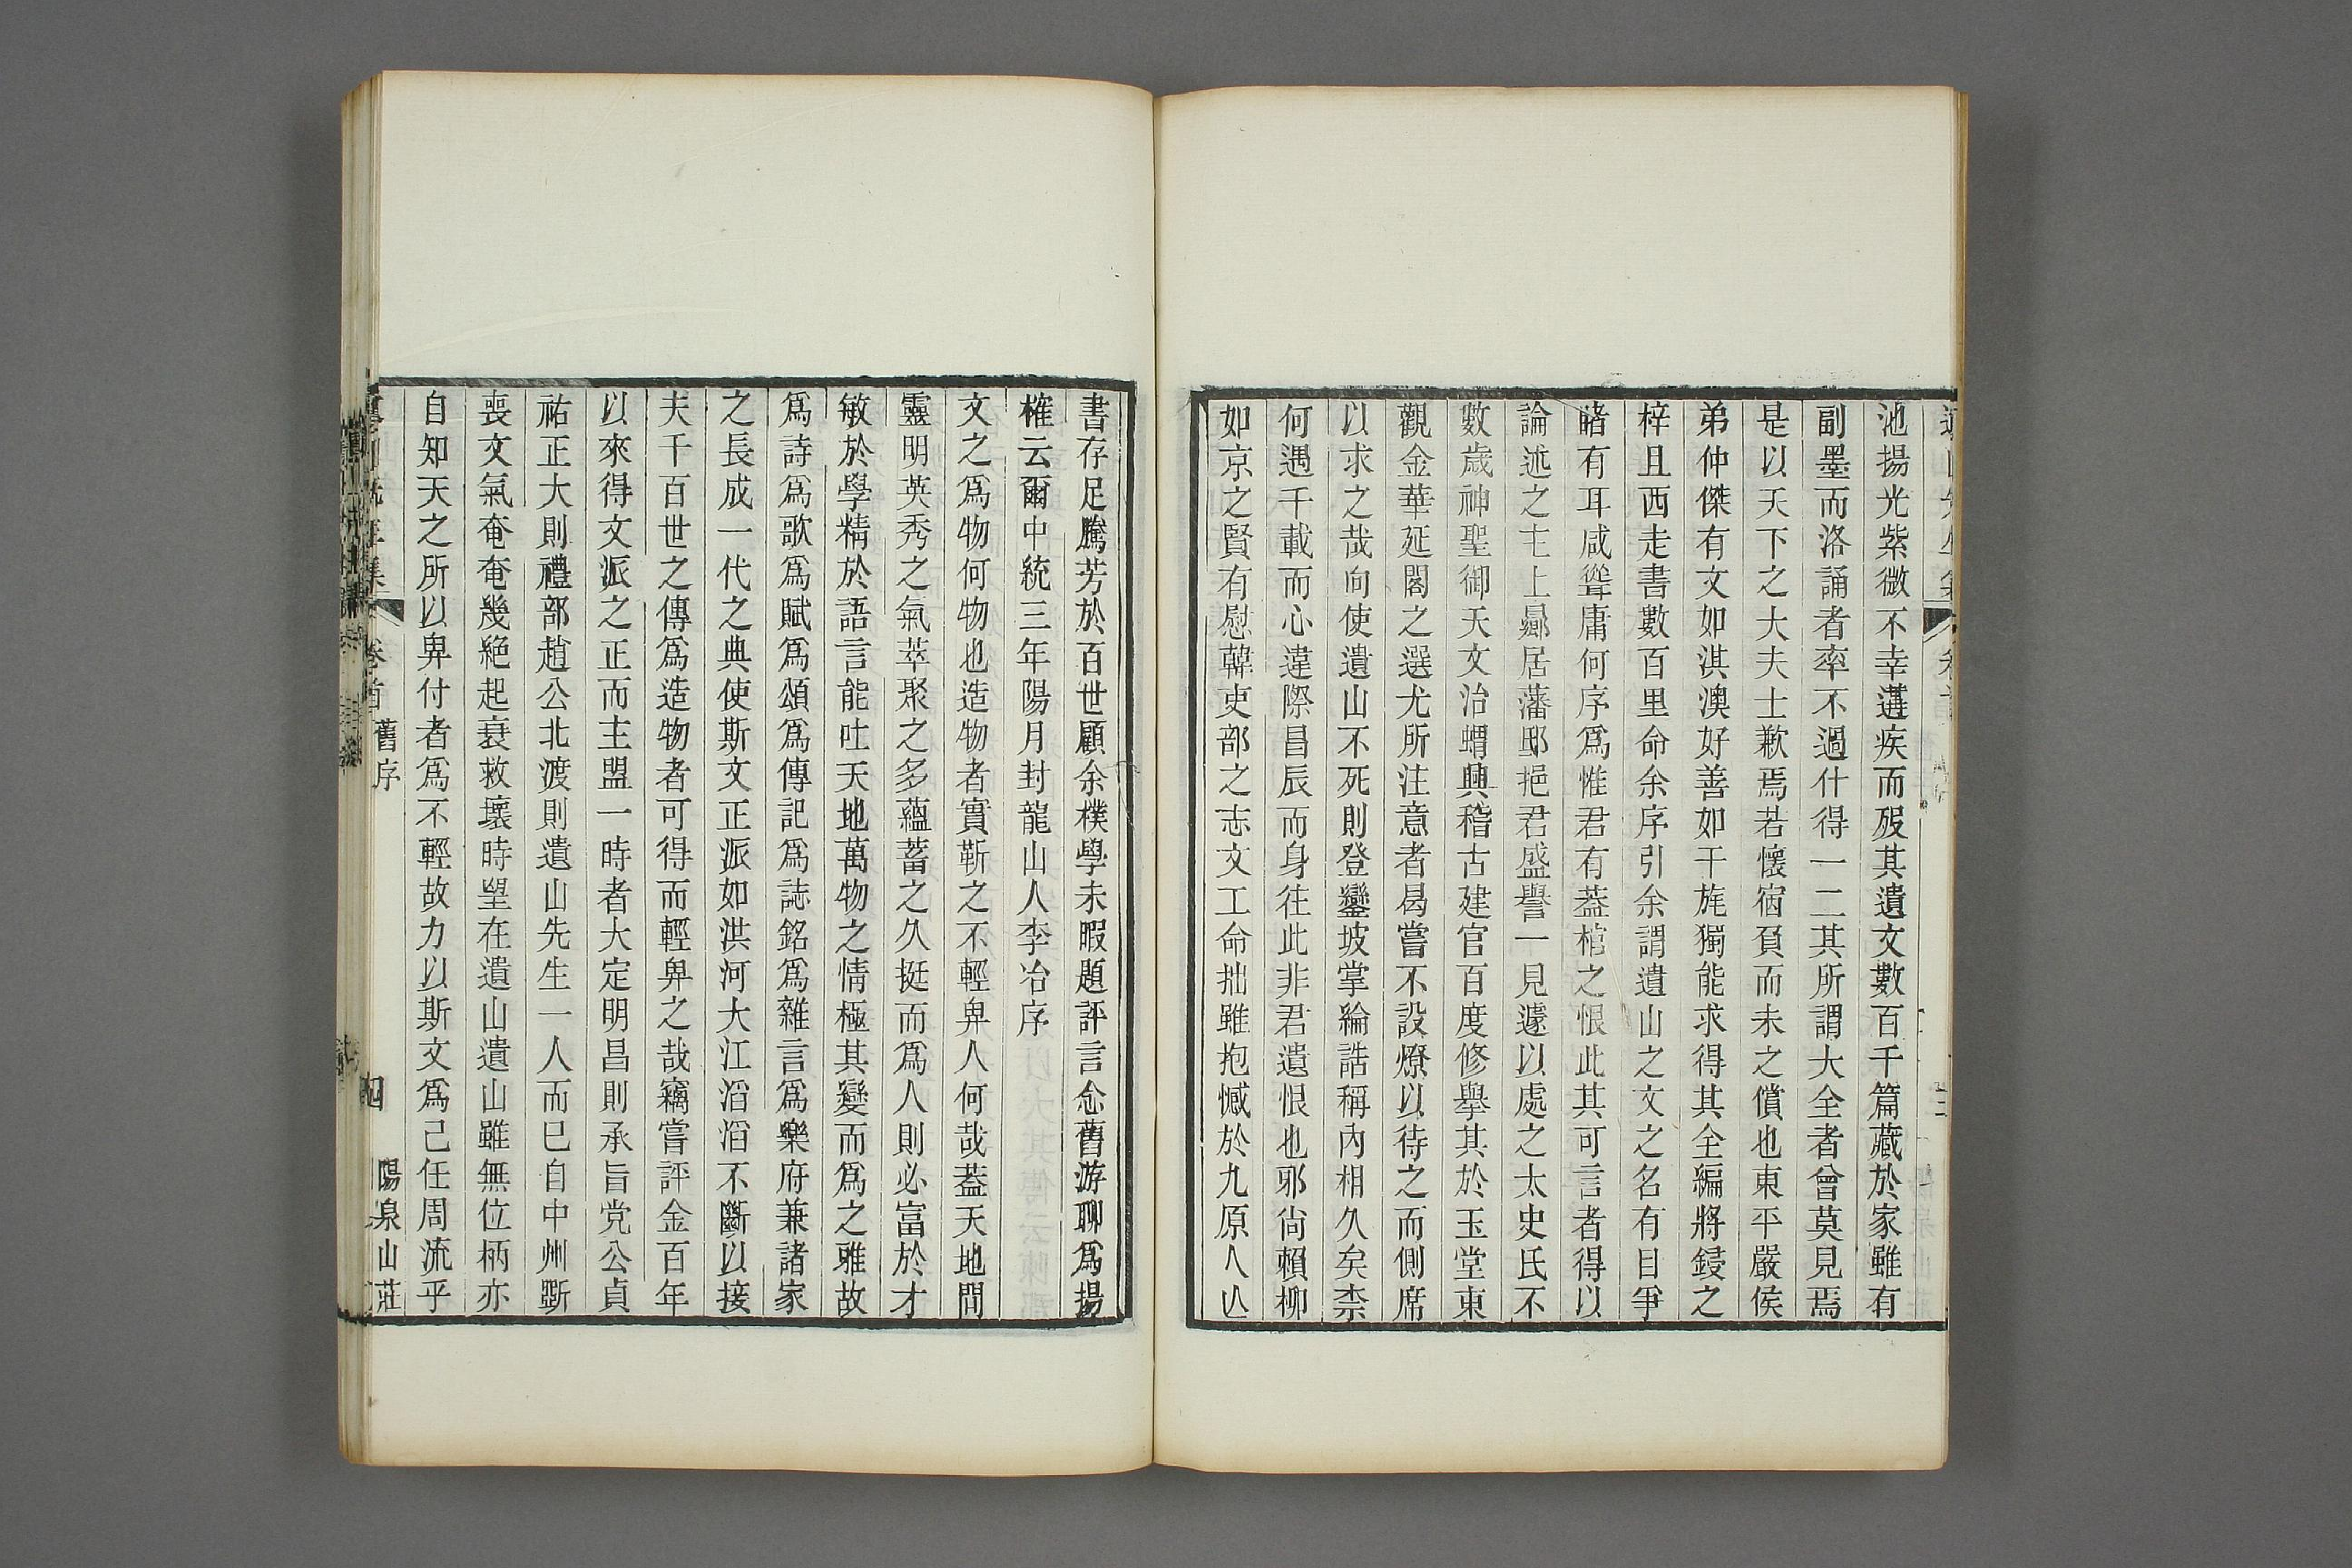 池揚光紫微不幸遘疾而歿其遺文數百千篇藏於家雖有
副墨而洛誦者率不過什得一二其所謂大全者曾莫見焉
是以天下之大夫士歉焉若懷宿負而未之償也東平嚴侯
弟仲傑有文如淇澳好善如干旄獨能求得其全編將鋟之
梓且西走書數百里命余序引余謂遺山之文之名有目爭
睹有耳咸聳庸何序爲惟君有葢棺之恨此其可言者得以
論述之主上曏居藩邸挹君盛譽一見遽以處之太史氏不
數歲神聖御天文治蝟興稽古建官百度修舉其於玉堂東
觀金華延閣之選尤所注意者曷嘗不設燎以待之而側席
以求之哉向使遺山不死則登鑾坡掌綸誥稱內相久矣柰
何遇千載而心違際昌辰而身往此非君遺恨也邪尙賴柳
如京之賢有慰韓吏部之志文工命拙雖抱憾於九原人亾
書存足騰芳於百世顧余樸學未暇題評言念舊游聊爲揚
榷云爾中統三年陽月封龍山人李冶序
文之爲物何物也造物者實靳之不輕畀人何哉葢天地間
靈明英秀之氣萃聚之多蘊蓄之久挺而爲人則必富於才
敏於學精於語言能吐天地萬物之情極其變而爲之雅故
爲詩爲歌爲賦爲頌爲傳記爲誌銘爲雜言爲樂府兼諸家
之長成一代之典使斯文正派如洪河大江滔滔不斷以接
夫千百世之傳爲造物者可得而輕畀之哉竊嘗評金百年
以來得文派之正而主盟一時者大定明昌則承旨党公貞
祐正大則禮部趙公北渡則遺山先生一人而已自中州斲
喪文氣奄奄幾絶起衰救壞時望在遺山遺山雖無位柄亦
自知天之所以畀付者爲不輕故力以斯文爲己任周流乎
卷首 舊序 四 陽泉山莊